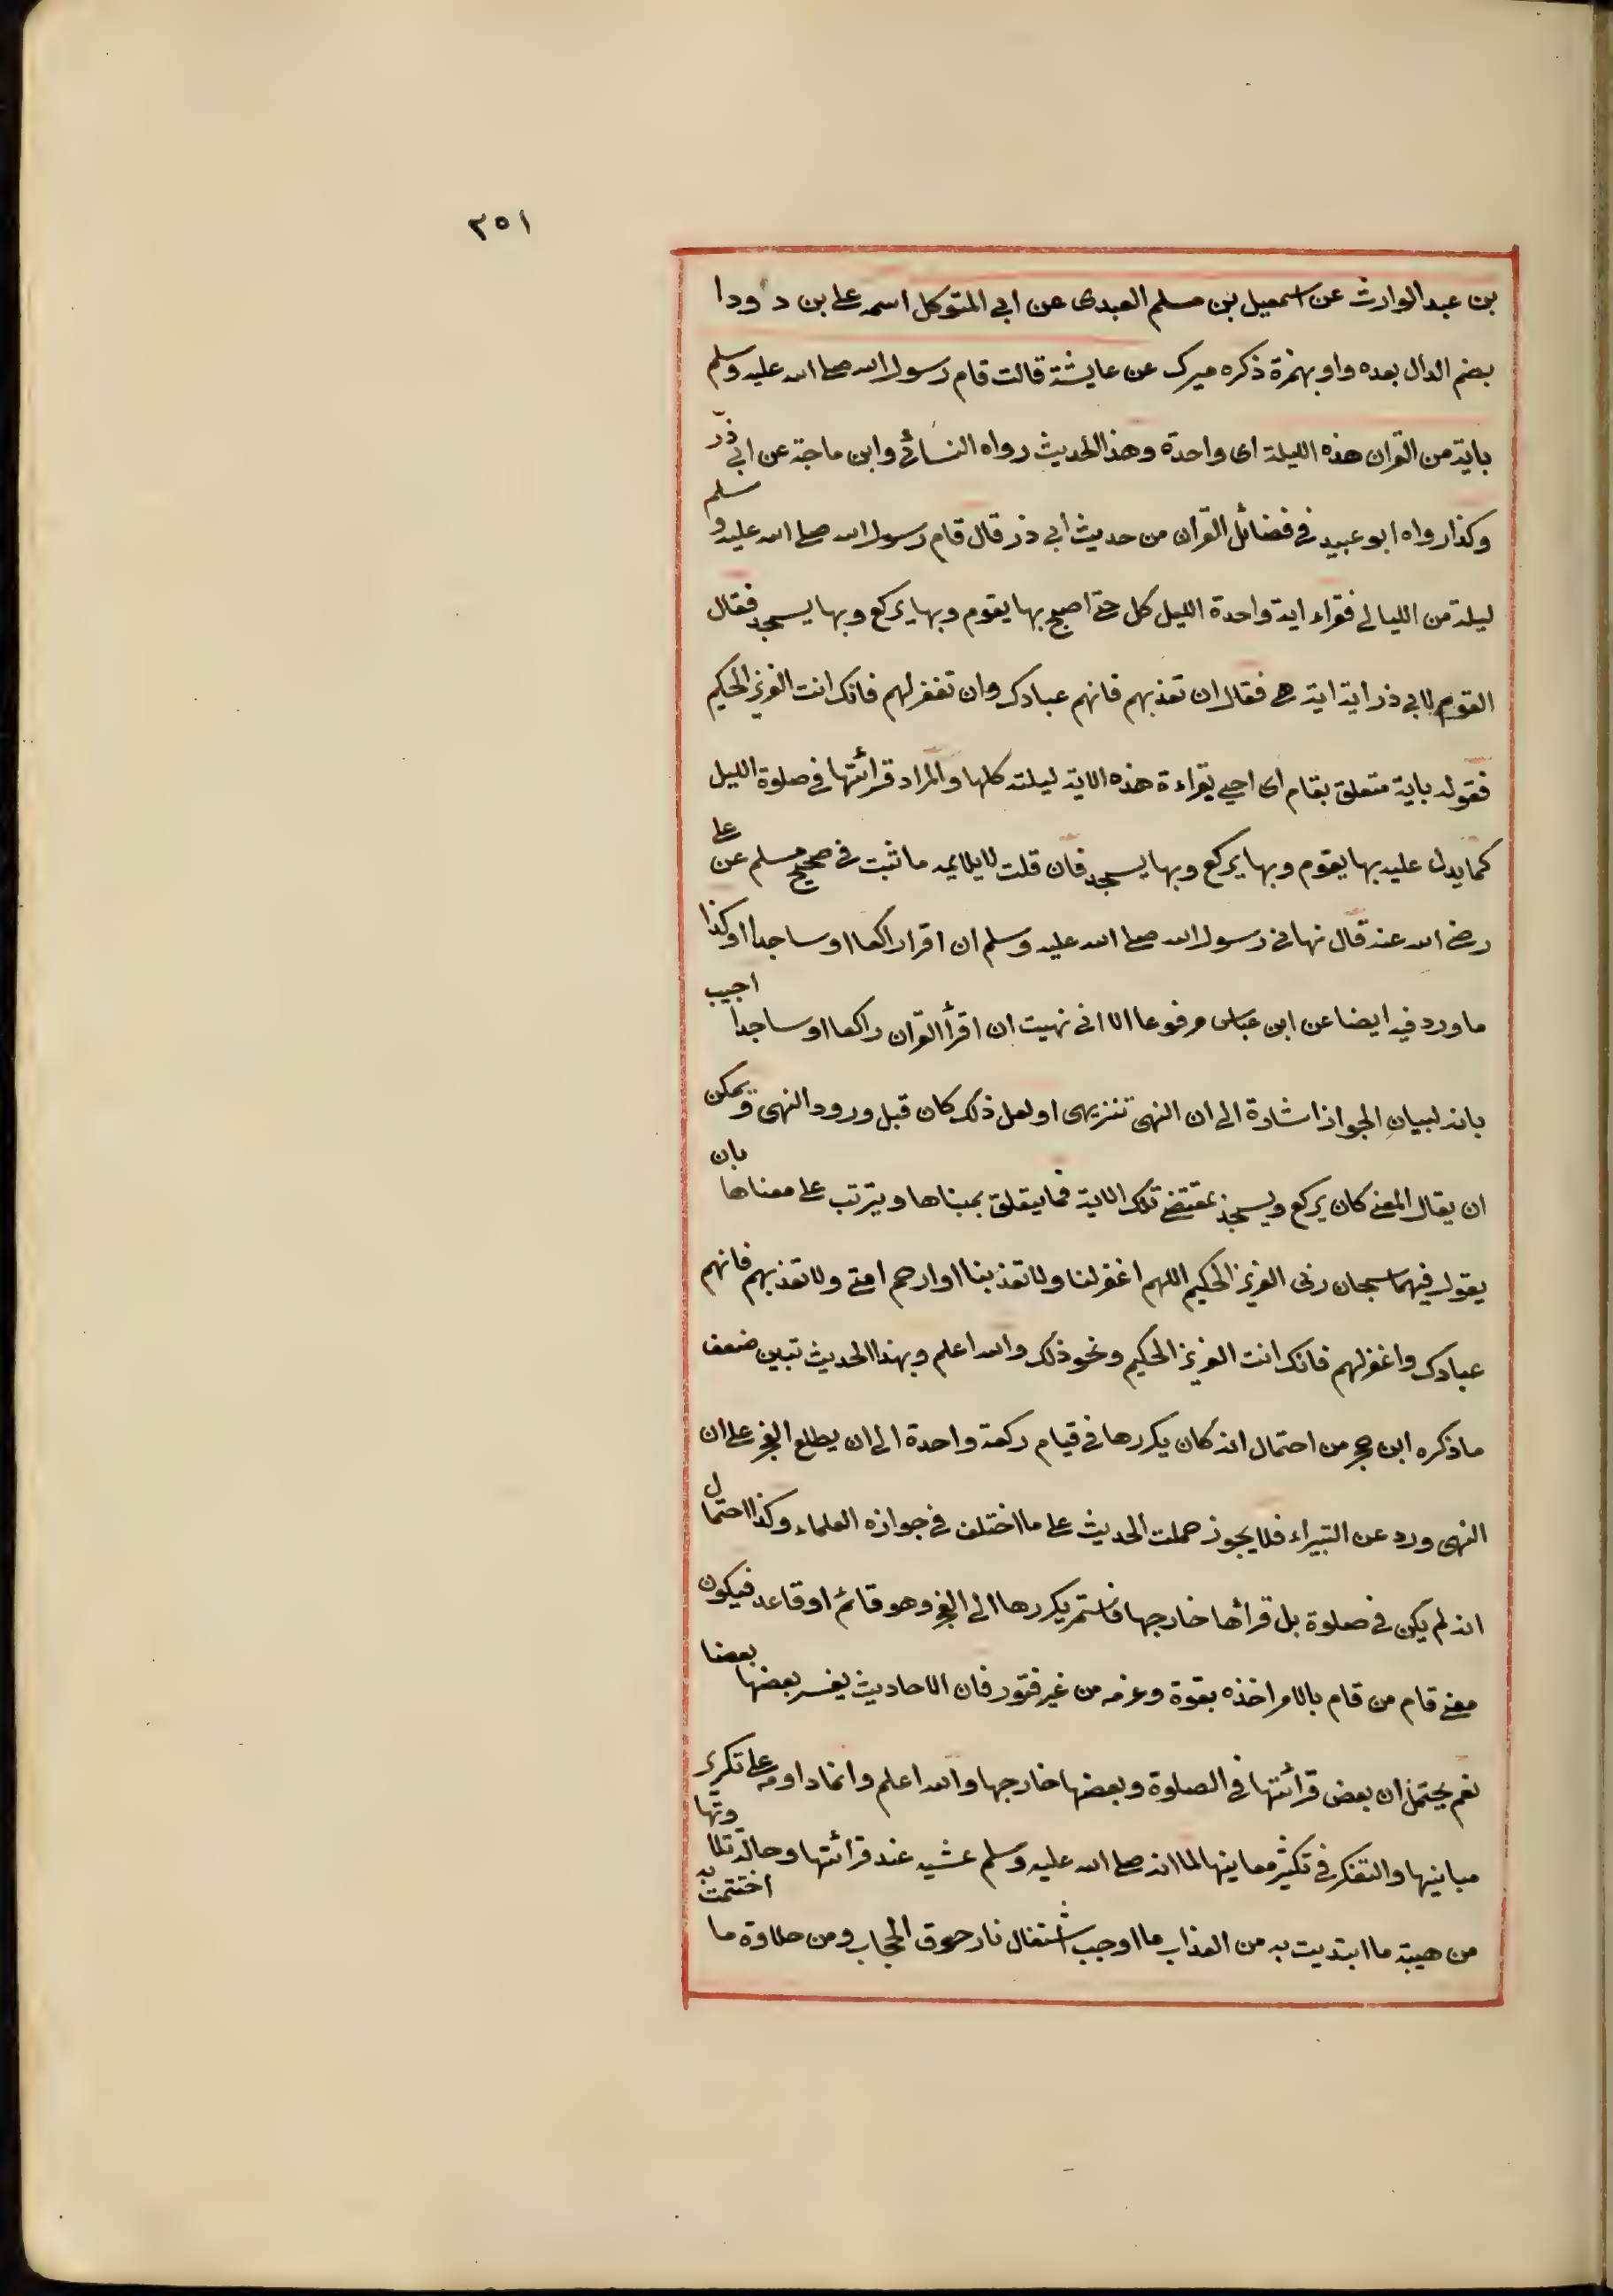 ٢٥١
بن عبد الوارث عن اسمعيل بن مسلم العبدى عن ابي المتوكل اسمه على بن داود او
بضم الدال بعده واو بهمزة ذكره ميرك عن عايشة قالت قام رسول الله صلى الله عليه وسلم
باية من القرآن هذه الليلة اى واحدة وهذا الحديث رواه النسائى وابن ماجة عن ابي ذر
وكذا رواه ابو عبيد فى فضائل القرآن من حديث أبي ذر قال قام رسول الله صلى الله عليه وسلم
ليلة من الليالى فقراء اية واحدة الليل كل حتى اصبح بها يقوم وبها يركع وبها يسجد فقال
القوم لابي ذر اية اية هى فقال ان تعذبهم فانهم عبادك وان تغفر لهم فانك انت العزيز الحكيم
فقوله باية متعلق بقام اى احيى بقراءة هذه الاية ليلته كلها والمراد قرائتها فى صلوة الليل
كما يدل عليه بها يقوم وبها يركع وبها يسجد فان قلت لايلايمه ما ثبت فى صحيح مسلم عن على
رضى الله عنه قال نهانى رسول الله صلى الله عليه وسلم ان اقرا راكعا او ساجدا وكذا
ما ورد فيه ايضا عن ابن عباس مرفوعا الا انى نهيت ان اقرأ القرآن راكعا او ساجدا اجيب
بانه لبيان الجواز اشارة الى ان النهى تنزيهى او لعل ذلك كان قبل ورود النهى ويمكن
ان يقال المعنى كان يركع ويسجد بمقتضى تلك الاية فما يتعلق بمبناها ويترتب على معناها بان
يقول فيهما سبحان ربى العزيز الحكيم اللهم اغفر لنا ولا تعذبنا او ارحم امتى ولا تعذبهم فانهم
عبادك واغفر لهم فانك انت العزيز الحكيم ونحو ذلك والله اعلم وبهذا الحديث تبين ضعف
ما ذكره ابن حجر من احتمال انه كان يكررها فى قيام ركعة واحدة الى ان يطلع الفجر على ان
النهى ورد عن البتيراء فلا يجوز حملت الحديث على ما اختلف فى جوازه العلماء وكذا احتمال
انه لم يكن فى صلوة بل قرأها خارجها فاستمر يكررها الى الفجر وهو قائم او قاعد فيكون
معنى قام من قام بالامر اخذه بقوة وعزمه من غير فتور فان الاحاديث يفسر بعضها بعضا
نعم يحتمل ان بعض قرائتها فى الصلوة وبعضها خارجها والله اعلم وانما داومه على تكرير
مبانيها والتفكر فى تكثير معاينها لما انه صلى الله عليه وسلم غشيه عند قرائتها وحالة تلاوتها
من هيبة ما ابتديت به من العذاب ما اوجب اشتغال نار خوف الحجاب ومن حلاوة ما اختتمت به